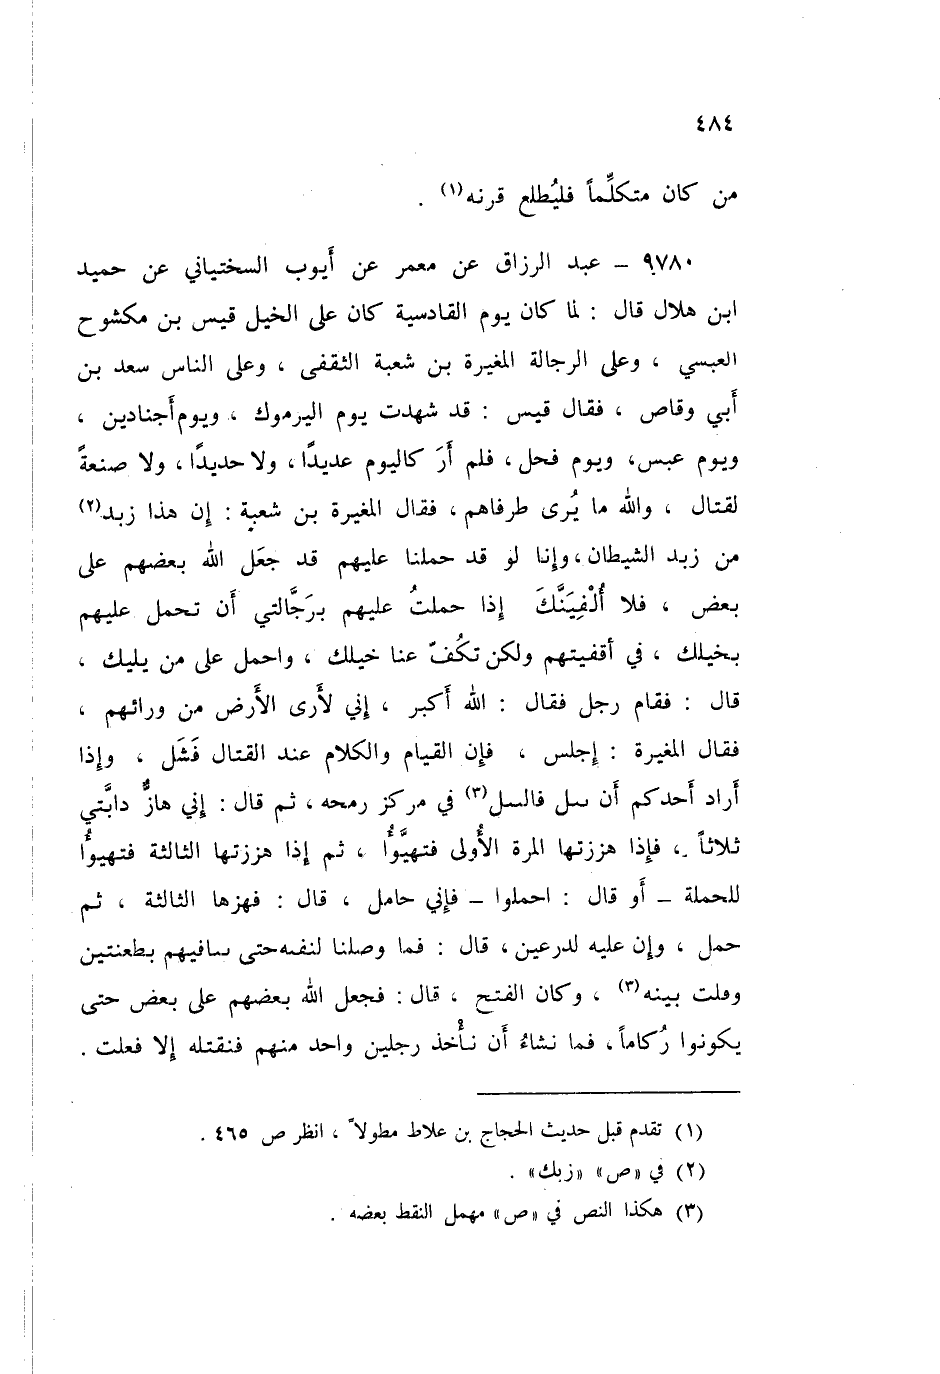 ٤٨٤
من كان متكلِّماً فليُطلع قرنه(١) .
٩٧٨٠ – عبد الرزاق عن معمر عن أيوب السختياني عن حميد
ابن هلال قال : لما كان يوم القادسية كان على الخيل قيس بن مكشوح
العبسي ، وعلى الرجالة المغيرة بن شعبة الثقفى ، وعلى الناس سعد بن
أبي وقاص ، فقال قيس : قد شهدت يوم اليرموك ، ويوم أجنادين ،
ويوم عبس، ويوم فحل، فلم أرَ كاليوم عديدًا، ولا حديدًا، ولا صنعةً
لقتال ، والله ما يُرى طرفاهم، فقال المغيرة بن شعبة : إن هذا زبد(٢)
من زبد الشيطان، وإنا لو قد حملنا عليهم قد جعَل الله بعضهم على
بعض ، فلا أُلْفِيَنَّكَ إذا حملتُ عليهم برَجَّالتي أن تحمل عليهم
بخيلك ، في أقفيتهم ولكن تكُفّ عنا خيلك ، واحمل على من يليك ،
قال : فقام رجل فقال : الله أكبر ، إني لأرى الأرض من ورائهم ،
فقال المغيرة : إجلس ، فإن القيام والكلام عند القتال فَشَل ، وإذا
أراد أحدكم أن سل فالسل(٣) في مركز رمحه ، ثم قال : إني هازٌّ دابَّتي
ثلاثاً ، فإذا هززتها المرة الأُولى فتهيَّوُّا ، ثم إذا هززتها الثالثة فتهيوُّا
للحملة – أو قال : احملوا – فإني حامل ، قال : فهزها الثالثة ، ثم
حمل ، وإن عليه لدرعين، قال : فما وصلنا لنفسه حتى سافيهم بطعنتين
وفلت بينه(٣) ، وكان الفتح ، قال : فجعل الله بعضهم على بعض حتى
يكونوا رُكاماً، فما نشاءُ أن نأْخذ رجلين واحد منهم فنقتله إلا فعلت .
(١) تقدم قبل حديث الحجاج بن علاط مطولاً ، انظر ص ٤٦٥ .
(٢) في «ص» «زبك» .
(٣) هكذا النص في «ص» مهمل النقط بعضه .